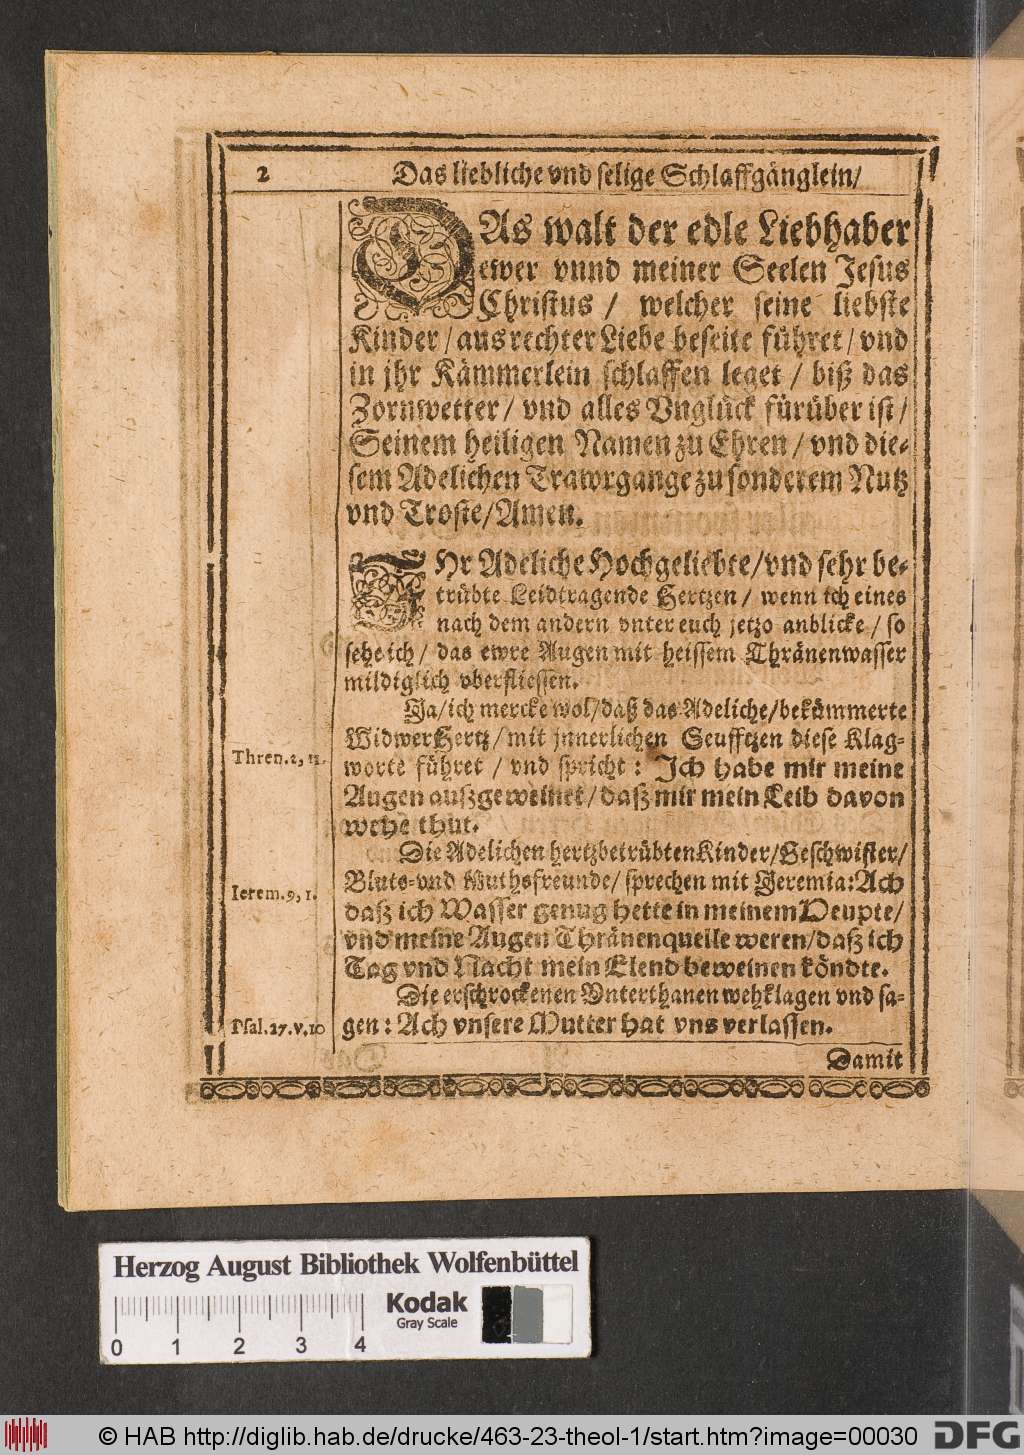 2 Das liebliche vnd selige Schlaffgänglein/
DAs walt der edle Liebhaber
ewer vnnd meiner Seelen Jesus
Christus / welcher seine liebste
Kinder / aus rechter Liebe beseite führet / vnd
in jhr Kämmerlein schlaffen leget / biß das
Zornwetter / vnd alles Vnglück fürüber ist /
Seinem heiligen Namen zu Ehren / vnd die-
sem Adelichen Trawrgange zu sonderem Nutz
vnd Troste / Amen.
IHr Adeliche Hochgeliebte / vnd sehr be-
trübte Leidtragende Hertzen / wenn ich eines
nach dem andern vnter euch jetzo anblicke / so
sehe ich / das ewre Augen mit heissem Thränenwasser
mildiglich vberfliessen.
Ja / ich mercke wol / daß das Adeliche / bekümmerte
WidwerHertz / mit jnnerlichen Seufftzen diese Klag-
Thren. 2, 11.
worte führet / vnd spricht : Ich habe mir meine
Augen außgeweinet / daß mir mein Leib davon
wehe thut.
Die Adelichen hertzbetrübten Kinder / Geschwister /
Bluts- vnd Muthsfreunde / sprechen mit Jeremia: Ach
Ierem. 9, 1.
daß ich Wasser genug hette in meinem Heupte /
vnd meine Augen Thränenquelle weren / daß ich
Tag vnd Nacht mein Elend beweinen köndte.
Die erschrockenen Vnterthanen wehklagen vnd sa-
Psal. 27. v. 10
gen : Ach vnsere Mutter hat vns verlassen.
Damit
Herzog August Bibliothek Wolfenbüttel
Kodak
Gray Scale
0 1 2 3 4
© HAB http://diglib.hab.de/drucke/463-23-theol-1/start.htm?image=00030
DFG